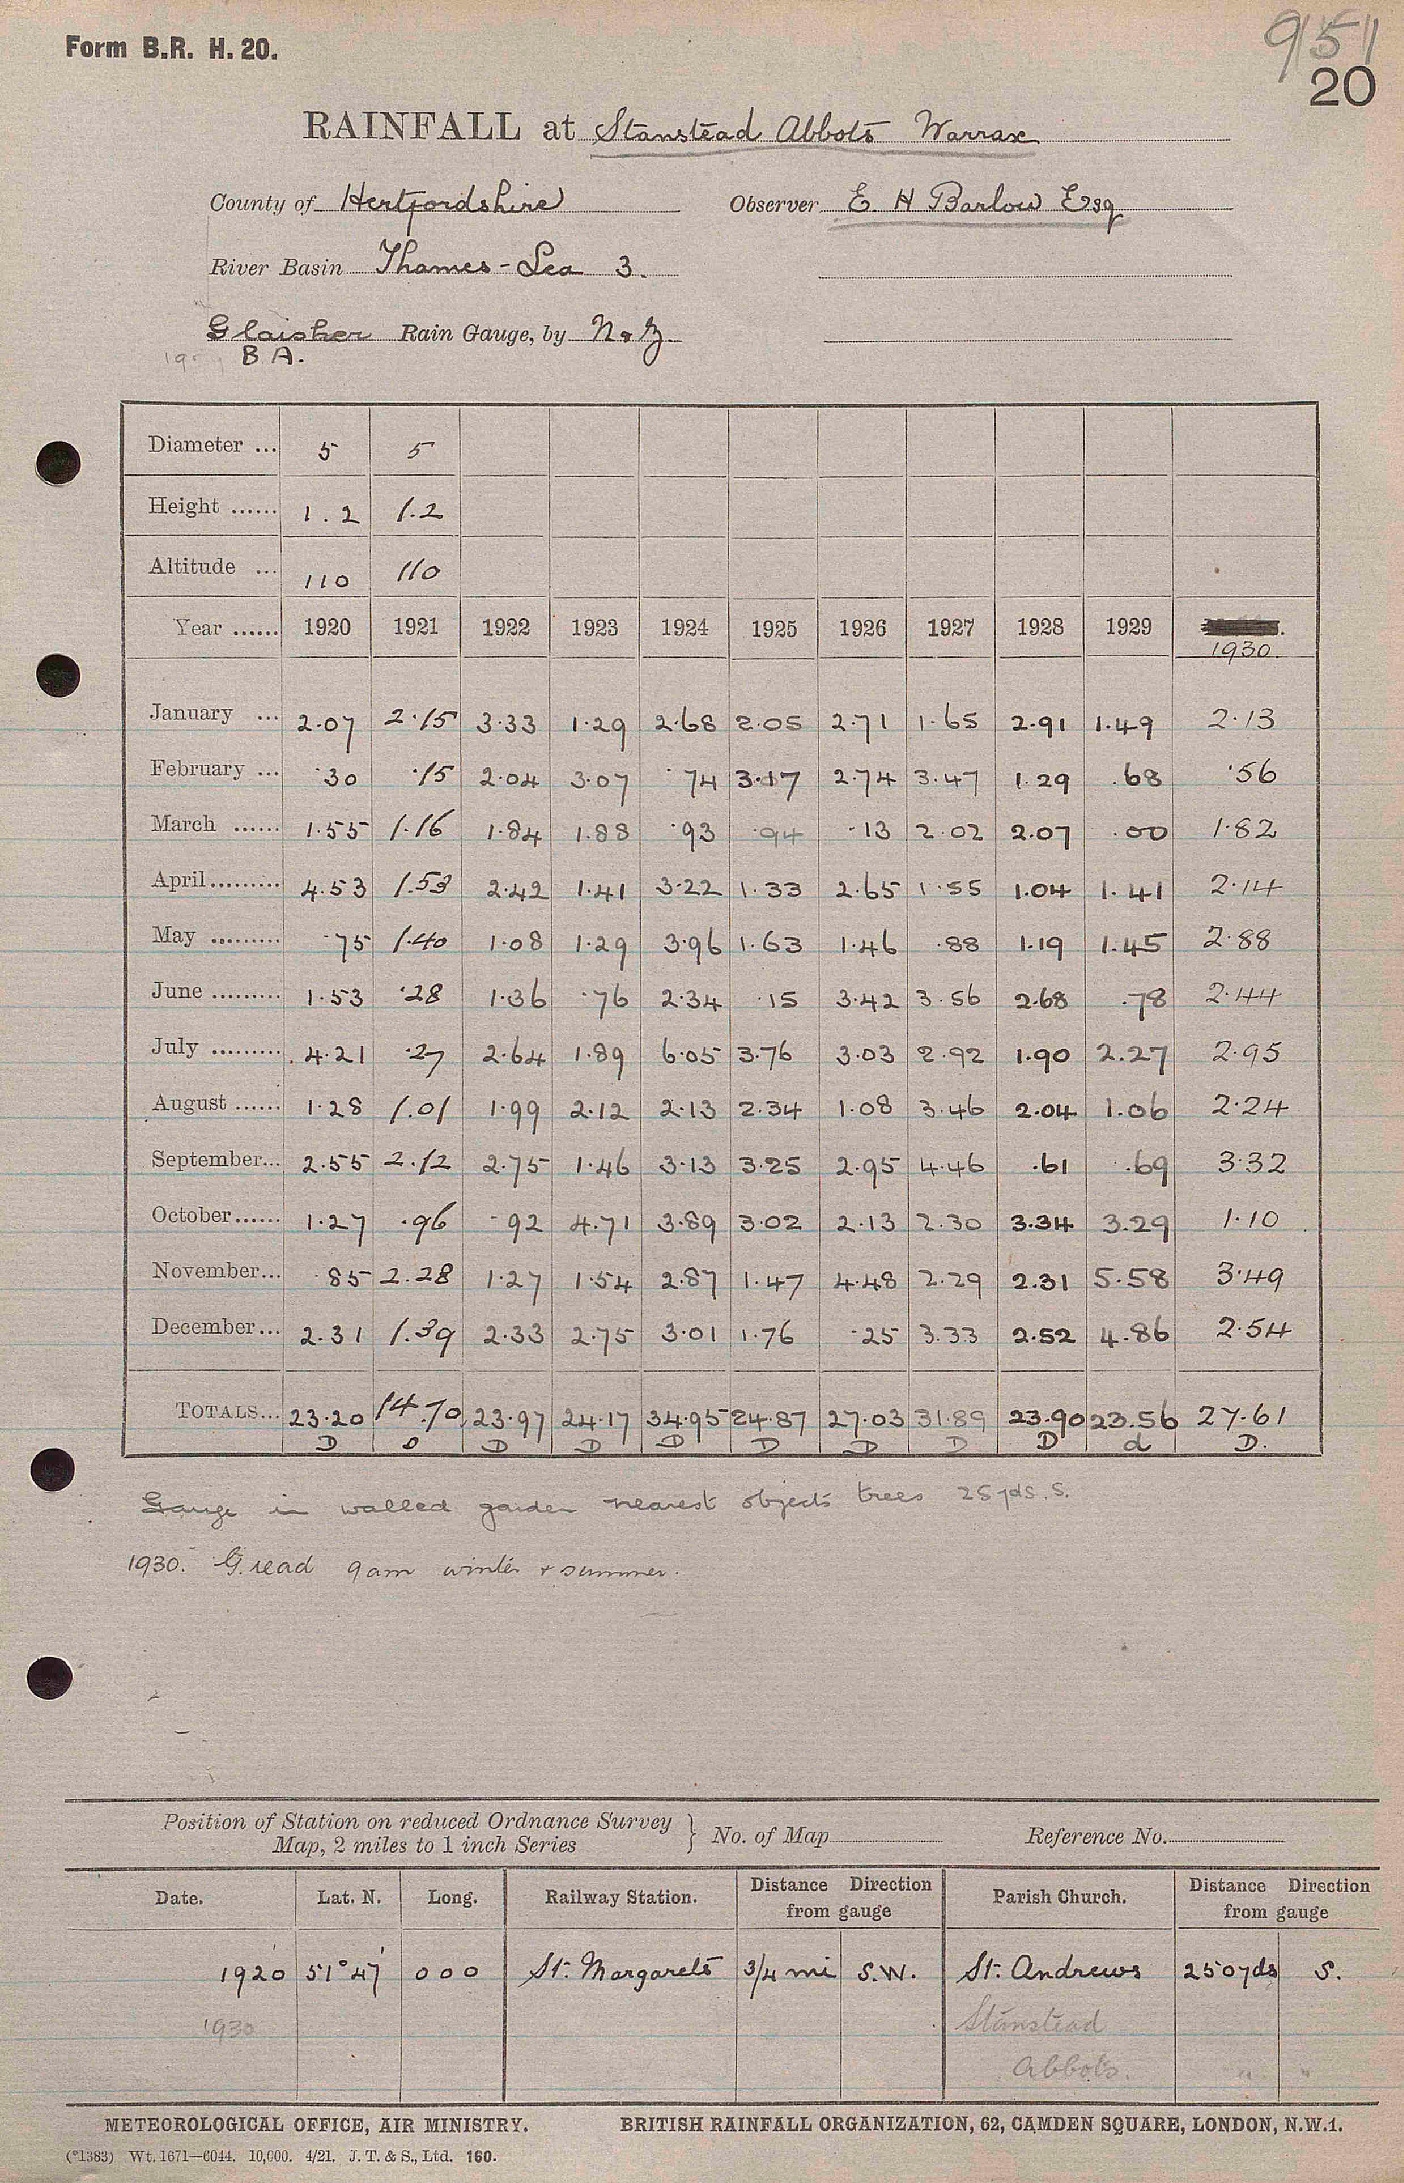 Form B.R. H. 20.
951
20
RAINFALL at Stanstead Abbots Warrax
County of Hertfordshire Observer E. H Barlow Esq
River Basin Thames - Lea 3.
Glaisher Rain Gauge, by N & Z
B A.
Diameter ... 5 5
Height ...... 1.2 1.2
Altitude ... 110 110
Year ...... 1920 1921 1922 1923 1924 1925 1926 1927 1928 1929 1930.
January ... 2.07 2.15 3.33 1.29 2.68 2.05 2.71 1.65 2.91 1.49 2.13
February ... .30 .15 2.04 3.07 .74 3.17 2.74 3.47 1.29 .68 .56
March ...... 1.55 1.16 1.84 1.88 .93 .94 .13 2.02 2.07 .00 1.82
April......... 4.53 1.53 2.42 1.41 3.22 1.33 2.65 1.55 1.04 1.41 2.14
May ......... .75 1.40 1.08 1.29 3.96 1.63 1.46 .88 1.19 1.45 2.88
June ......... 1.53 .28 1.36 .76 2.34 .15 3.42 3.56 2.68 .78 2.44
July ......... 4.21 .27 2.64 1.89 6.05 3.76 3.03 2.92 1.90 2.27 2.95
August ...... 1.28 1.01 1.99 2.12 2.13 2.34 1.08 3.46 2.04 1.06 2.24
September... 2.55 2.12 2.75 1.46 3.13 3.25 2.95 4.46 .61 .69 3.32
October...... 1.27 .96 .92 4.71 3.89 3.02 2.13 2.30 3.34 3.29 1.10
November... .85 2.28 1.27 1.54 2.87 1.47 4.48 2.29 2.31 5.58 3.49
December... 2.31 1.39 2.33 2.75 3.01 1.76 .25 3.33 2.52 4.86 2.54
TOTALS... 23.20 14.70 23.97 24.17 34.95 24.87 27.03 31.89 23.90 23.56 27.61
D D D D D D D D D d D.
Gauge in walled garden nearest objects trees 25 yds. S.
1930. G. read 9am winter & summer.
Position of Station on reduced Ordnance Survey
Map, 2 miles to 1 inch Series } No. of Map Reference No.
Date. Lat. N. Long. Railway Station. Distance Direction from gauge Parish Church. Distance Direction from gauge
1920 51° 47' 0 0 0 St. Margarets 3/4 mi S.W. St. Andrews 250 yds S.
1930 Stanstead
Abbots. " "
METEOROLOGICAL OFFICE, AIR MINISTRY. BRITISH RAINFALL ORGANIZATION, 62, CAMDEN SQUARE, LONDON, N.W.1.
(*1383) Wt. 1671—6044. 10,000. 4/21. J. T. & S., Ltd. 160.